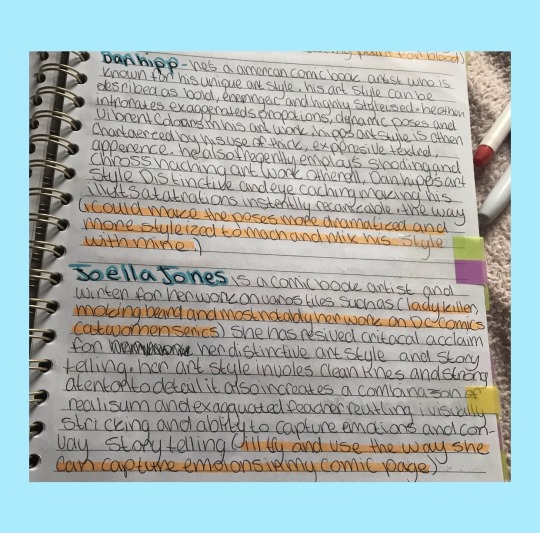 Danhipp - he's a american comic book artist who is
known for his unique art style. his art style can be
desribed as bold, energetic and highly styleused. heathen
intromates exaggerateds propotions, dynamic poses and
Vibrent colours in his art work. hipps art style is often
charterced by his use of thick, expresive textred,
apperence. he also freqently employs shading and
chross haching art work otherall, Danhipps art
style Distinctive and eye caching making his
instently recankable. the way
(I could make the poses more dramatized and
more styleized to mach and mix his style
with mine.)
Joëlla Jones is a comic book artist and
winter for her work on varios tiles such as (lady killer,
making beard and most notably her work on DC comics
catwomen series) she has resived critacal acclaim
for her distinctive art style and story
telling. her art style involes clean lines and strong
atenton to detail it also increates a combination of
realisum and exaggurated feacher reultling i visually
stricking and ability to capture emotions and con-
vay story telling (ill try and use the way she
can capture emotons in my comic page)